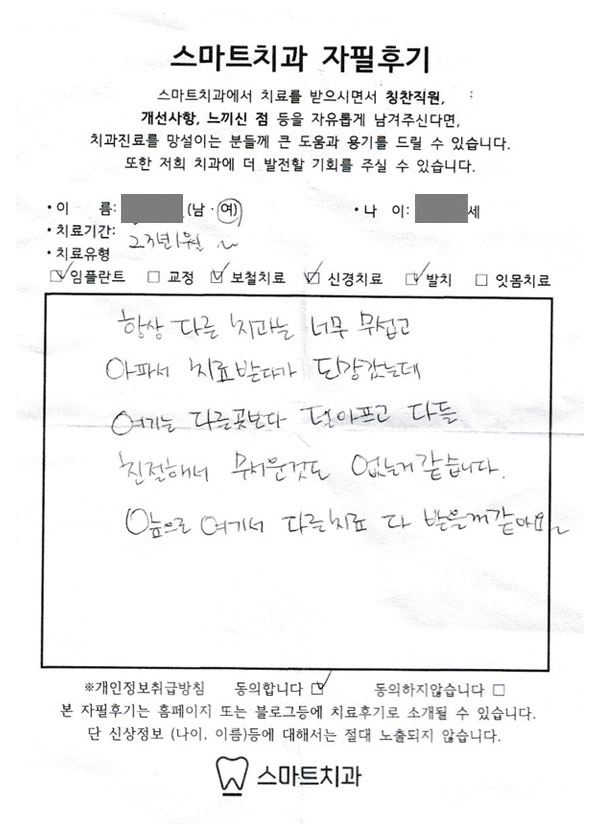 스마트치과 자필후기
스마트치과에서 치료를 받으시면서 칭찬직원,
개선사항, 느끼신 점 등을 자유롭게 남겨주신다면,
치과진료를 망설이는 분들께 큰 도움과 용기를 드릴 수 있습니다.
또한 저희 치과에 더 발전할 기회를 주실 수 있습니다.
• 이 름: (남 · 여) • 나 이: 세
• 치료기간: 23년1월 ~
• 치료유형
☑임플란트 ☐교정 ☑보철치료 ☑신경치료 ☑발치 ☐잇몸치료
항상 다른 치과는 너무 무섭고
아파서 치료받다가 되강갔는데
여기는 다른곳보다 덜아프고 다들
친절해서 무서운것도 없는거같습니다.
앞으로 여기서 다른치료 다 받을꺼같아요~
※개인정보취급방침 동의합니다 ☑ 동의하지않습니다 ☐
본 자필후기는 홈페이지 또는 블로그등에 치료후기로 소개될 수 있습니다.
단 신상정보 (나이, 이름)등에 대해서는 절대 노출되지 않습니다.
스마트치과